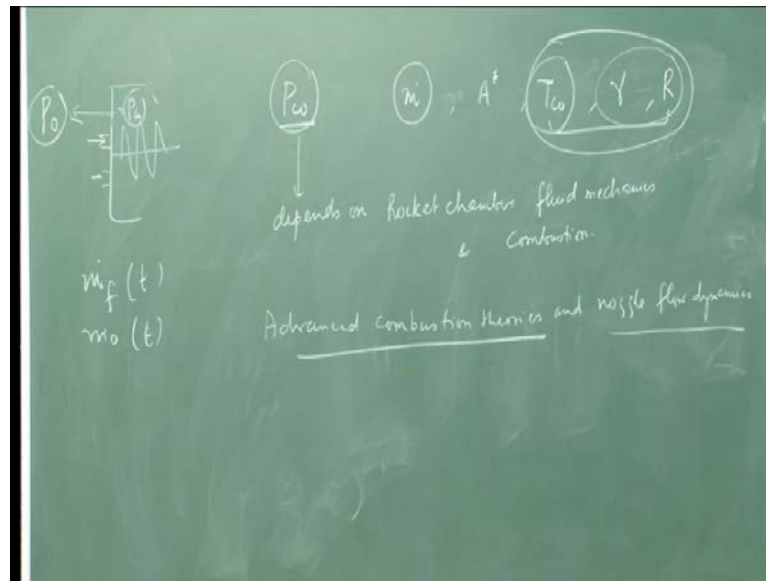 P₀ Pc
Pco ṁ , A* , Tco , γ , R
depends on Rocket chamber fluid mechanics
& Combustion.
ṁf (t)
ṁo (t)
Advanced combustion theories and nozzle flow dynamics